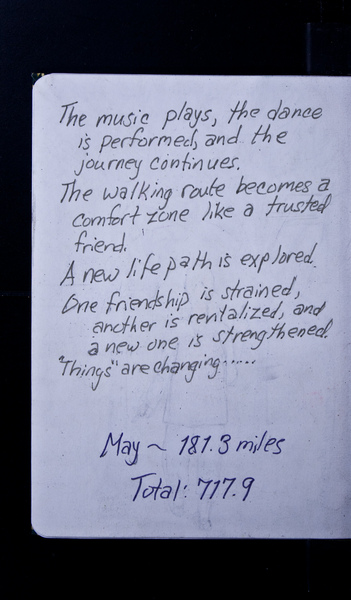 The music plays, the dance
is performed, and the
journey continues.
The walking route becomes a
comfort zone like a trusted
friend.
A new life path is explored.
One friendship is strained,
another is revitalized, and
a new one is strengthened.
"Things" are changing......
May ~ 181.3 miles
Total: 717.9